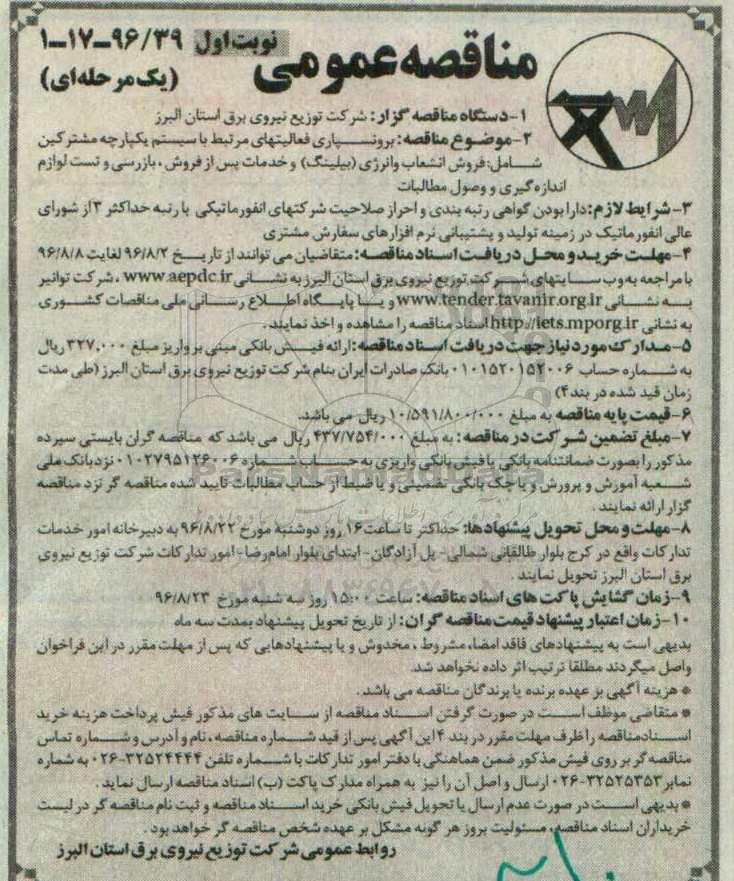 مناقصه عمومی نوبت اول ۹۶/۳۹-۱۷-۱
(یک مرحله‌ای)
۱-دستگاه مناقصه گزار: شرکت توزیع نیروی برق استان البرز
۲-موضوع مناقصه: برونسپاری فعالیتهای مرتبط با سیستم یکپارچه مشترکین
شامل: فروش انشعاب وانرژی (بیلینگ) و خدمات پس از فروش، بازرسی و تست لوازم
اندازه گیری و وصول مطالبات
۳-شرایط لازم: دارا بودن گواهی رتبه بندی و احراز صلاحیت شرکتهای انفورماتیکی با رتبه حداکثر ۳ از شورای
عالی انفورماتیک در زمینه تولید و پشتیبانی نرم افزارهای سفارش مشتری
۴-مهلت خرید و محل دریافت اسناد مناقصه: متقاضیان می توانند از تاریخ ۹۶/۸/۲ لغایت ۹۶/۸/۸
با مراجعه به وب سایتهای شرکت توزیع نیروی برق استان البرز به نشانی www.aepdc.ir، شرکت توانیر
به نشانی www.tender.tavanir.org.ir و یا پایگاه اطلاع رسانی ملی مناقصات کشوری
به نشانی http://iets.mporg.ir اسناد مناقصه را مشاهده و اخذ نمایند.
۵-مدارک مورد نیاز جهت دریافت اسناد مناقصه: ارائه فیش بانکی مبنی بر واریز مبلغ ۳۲۷,۰۰۰ ریال
به شماره حساب ۰۱۰۱۵۲۰۱۵۲۰۰۶ بانک صادرات ایران بنام شرکت توزیع نیروی برق استان البرز (طی مدت
زمان قید شده در بند ۴)
۶-قیمت پایه مناقصه به مبلغ ۱۰/۵۹۱/۸۰۰/۰۰۰ ریال می باشد.
۷-مبلغ تضمین شرکت در مناقصه: به مبلغ ۴۳۷/۷۵۴/۰۰۰ ریال می باشد که مناقصه گران بایستی سپرده
مذکور را بصورت ضمانتنامه بانکی یا فیش بانکی واریزی به حساب شماره ۰۱۰۲۷۹۵۱۲۶۰۰۶ نزد بانک ملی
شعبه آموزش و پرورش و یا چک بانکی تضمینی و یا ضبط از حساب مطالبات تایید شده مناقصه گر نزد مناقصه
گزار ارائه نمایند.
۸-مهلت و محل تحویل پیشنهادها: حداکثر تا ساعت ۱۶ روز دوشنبه مورخ ۹۶/۸/۲۲ به دبیرخانه امور خدمات
تدارکات واقع در کرج بلوار طالقانی شمالی- پل آزادگان- ابتدای بلوار امام رضا- امور تدارکات شرکت توزیع نیروی
برق استان البرز تحویل نمایند.
۹-زمان گشایش پاکت های اسناد مناقصه: ساعت ۱۵:۰۰ روز سه شنبه مورخ ۹۶/۸/۲۳
۱۰-زمان اعتبار پیشنهاد قیمت مناقصه گران: از تاریخ تحویل پیشنهاد بمدت سه ماه
بدیهی است به پیشنهادهای فاقد امضاء، مشروط، مخدوش و یا پیشنهادهایی که پس از مهلت مقرر در این فراخوان
واصل میگردند مطلقا ترتیب اثر داده نخواهد شد.
* هزینه آگهی بر عهده برنده یا برندگان مناقصه می باشد.
* متقاضی موظف است در صورت گرفتن اسناد مناقصه از سایت های مذکور فیش پرداخت هزینه خرید
اسناد مناقصه را ظرف مهلت مقرر در بند ۴ این آگهی پس از قید شماره مناقصه، نام و آدرس و شماره تماس
مناقصه گر بر روی فیش مذکور ضمن هماهنگی با دفتر امور تدارکات با شماره تلفن ۳۲۵۲۴۴۴۴-۰۲۶ به شماره
نمابر ۳۲۵۲۵۳۵۳-۰۲۶ ارسال و اصل آن را نیز به همراه مدارک پاکت (ب) اسناد مناقصه ارسال نماید.
* بدیهی است در صورت عدم ارسال یا تحویل فیش بانکی خرید اسناد مناقصه و ثبت نام مناقصه گر در لیست
خریداران اسناد مناقصه، مسئولیت بروز هر گونه مشکل بر عهده شخص مناقصه گر خواهد بود.
روابط عمومی شرکت توزیع نیروی برق استان البرز